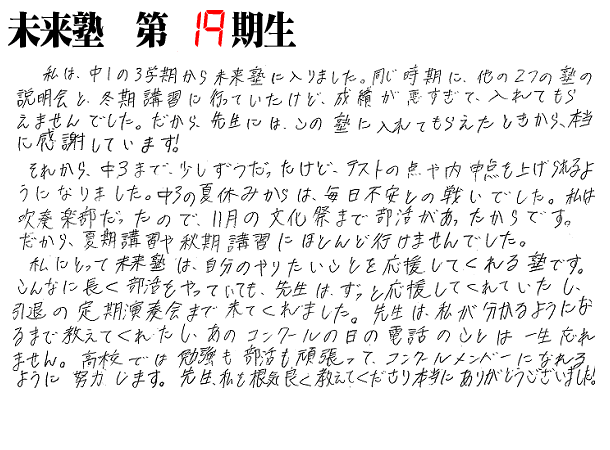 未来塾 第19期生
私は、中1の3学期から未来塾に入りました。同じ時期に、他の2つの塾の
説明会と、冬期講習に行っていたけど、成績が悪すぎて、入れてもら
えませんでした。だから、先生には、この塾に入れてもらえたときから、本当
に感謝しています!
それから、中3まで、少しずつだったけど、テストの点や内申点を上げられるよ
うになりました。中3の夏休みからは、毎日不安との戦いでした。私は
吹奏楽部だったので、11月の文化祭まで部活があったからです。
だから、夏期講習や秋期講習にほとんど行けませんでした。
私にとって未来塾は、自分のやりたいことを応援してくれる塾です。
こんなに長く部活をやっていても、先生は、ずっと応援してくれていたし、
引退の定期演奏会まで来てくれました。先生は、私が分かるようにな
るまで教えてくれたし、あのコンクールの日の電話のことは一生忘れ
ません。高校では勉強も部活も頑張って、コンクールメンバーになれる
ように努力します。先生、私を根気良く教えてくださり本当にありがとうございました!